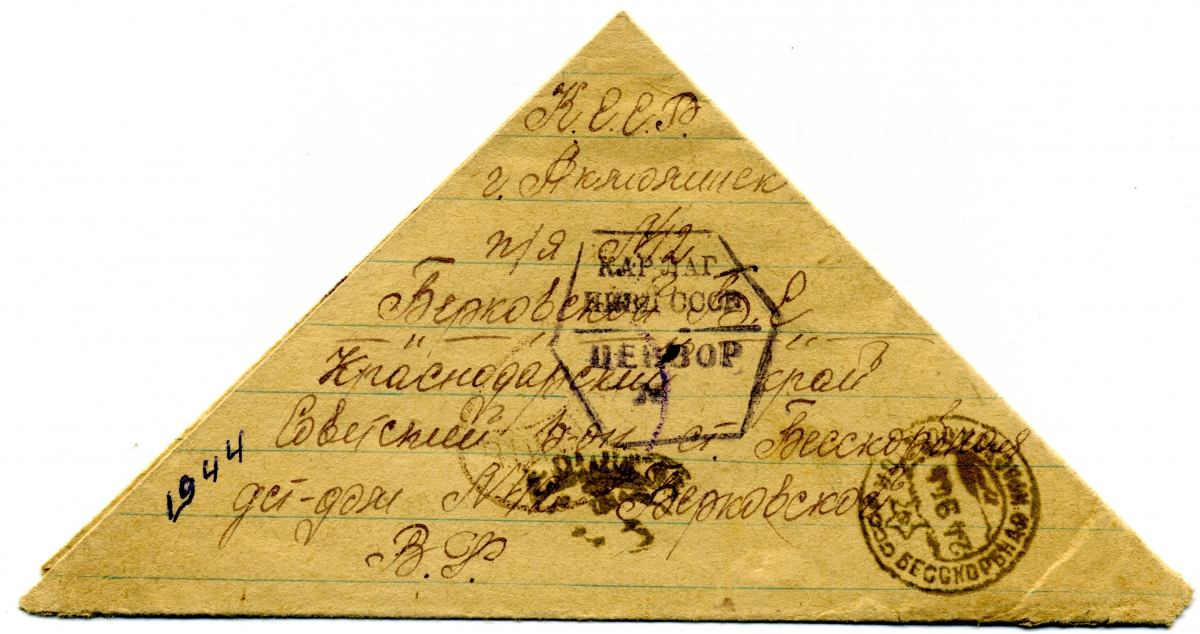 К.С.С.Р.
г. Акмолинск
п/я №12
Берковской Б. Е
Краснодарский край
Советский р-он ст. Бесскорбная
дет-дом № Берковской
В. Ф.
КАРЛАГ
НКВД СССР
ЦЕНЗОР
1944
БЕССКОРБНАЯ
СССР